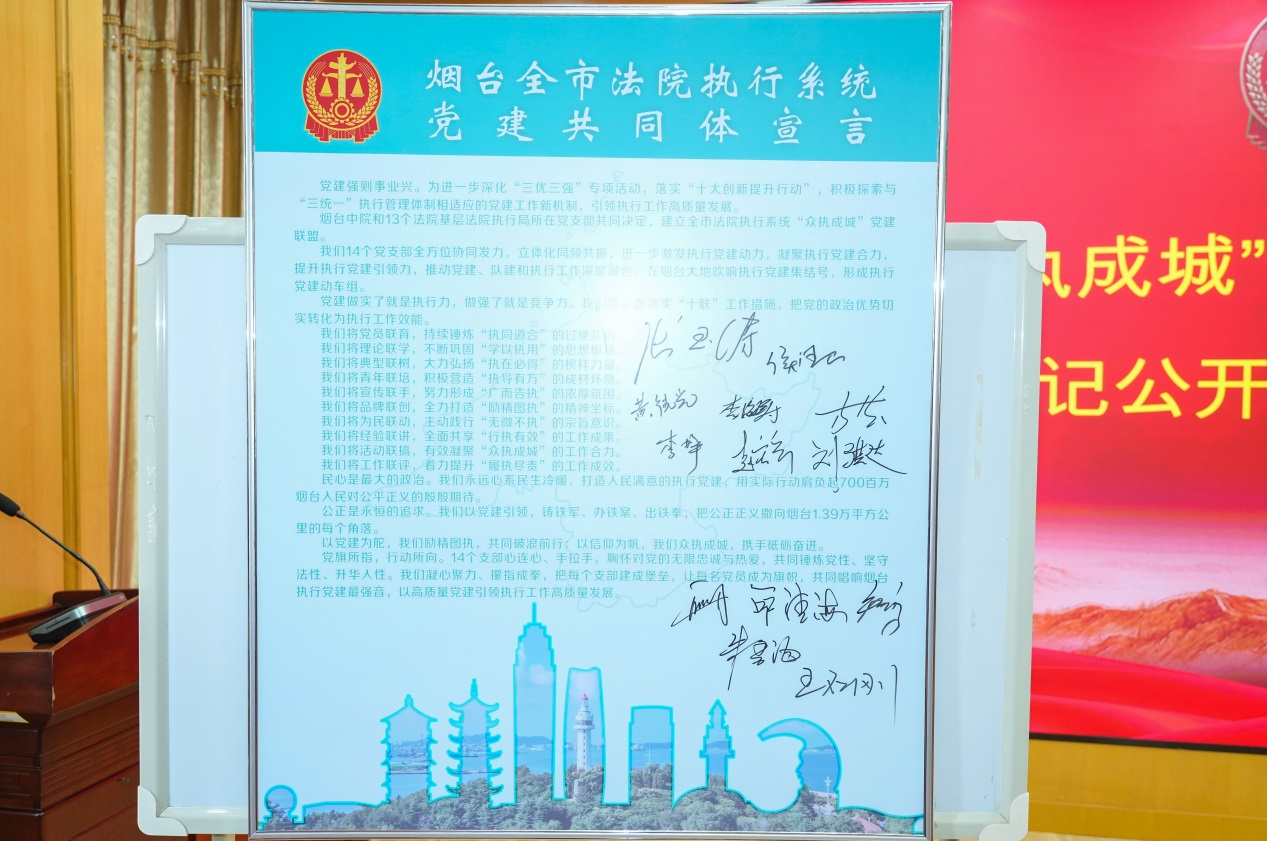 烟台全市法院执行系统
党建共同体宣言
党建强则事业兴。为进一步深化“三优三强”专项活动，落实“十大创新提升行动”，积极探索与
“三统一”执行管理体制相适应的党建工作新机制，引领执行工作高质量发展。
烟台中院和13个法院基层法院执行局所在党支部共同决定，建立全市法院执行系统“众执成城”党建
联盟。
我们14个党支部全方位协同发力，立体化同频共振，进一步激发执行党建动力，凝聚执行党建合力，
提升执行党建引领力，推动党建、队建和执行工作深度融合，在烟台大地吹响执行党建集结号，形成执行
党建动车组。
党建做实了就是执行力，做强了就是竞争力。我们 “十联”工作措施，把党的政治优势切
实转化为执行工作效能。
我们将党员联育，持续锤炼“执同道合”的过硬队伍。
我们将理论联学，不断巩固“学以执用”的思想
我们将典型联树，大力弘扬“执在必得”的榜样力量。
我们将青年联培，积极营造“执导有方”的成材环境。
我们将宣传联手，努力形成“广而吉执”的浓厚氛围。
我们将品牌联创，全力打造“励精图执”的精神坐标。
我们将为民联动，主动践行“无微不执”的宗旨意识。
我们将经验联讲，全面共享“行执有效”的工作成果。
我们将活动联搞，有效凝聚“众执成城”的工作合力。
我们将工作联评，着力提升“履执尽责”的工作成效。
民心是最大的政治。我们永远心系民生冷暖，打造人民满意的执行党建，用实际行动肩负起700百万
烟台人民对公平正义的殷殷期待。
公正是永恒的追求。我们以党建引领，铸铁军、办铁案、出铁拳，把公正正义撒向烟台1.39万平方公
里的每个角落。
以党建为舵，我们励精图执，共同破浪前行；以信仰为帆，我们众执成城，携手砥砺奋进。
党旗所指，行动所向。14个支部心连心、手拉手，胸怀对党的无限忠诚与热爱，共同锤炼党性、坚守
法性、升华人性。我们凝心聚力、攥指成拳，把每个支部建成堡垒，让每名党员成为旗帜，共同唱响烟台
执行党建最强音，以高质量党建引领执行工作高质量发展。
张玉涛
李峰
执成城”
记公开